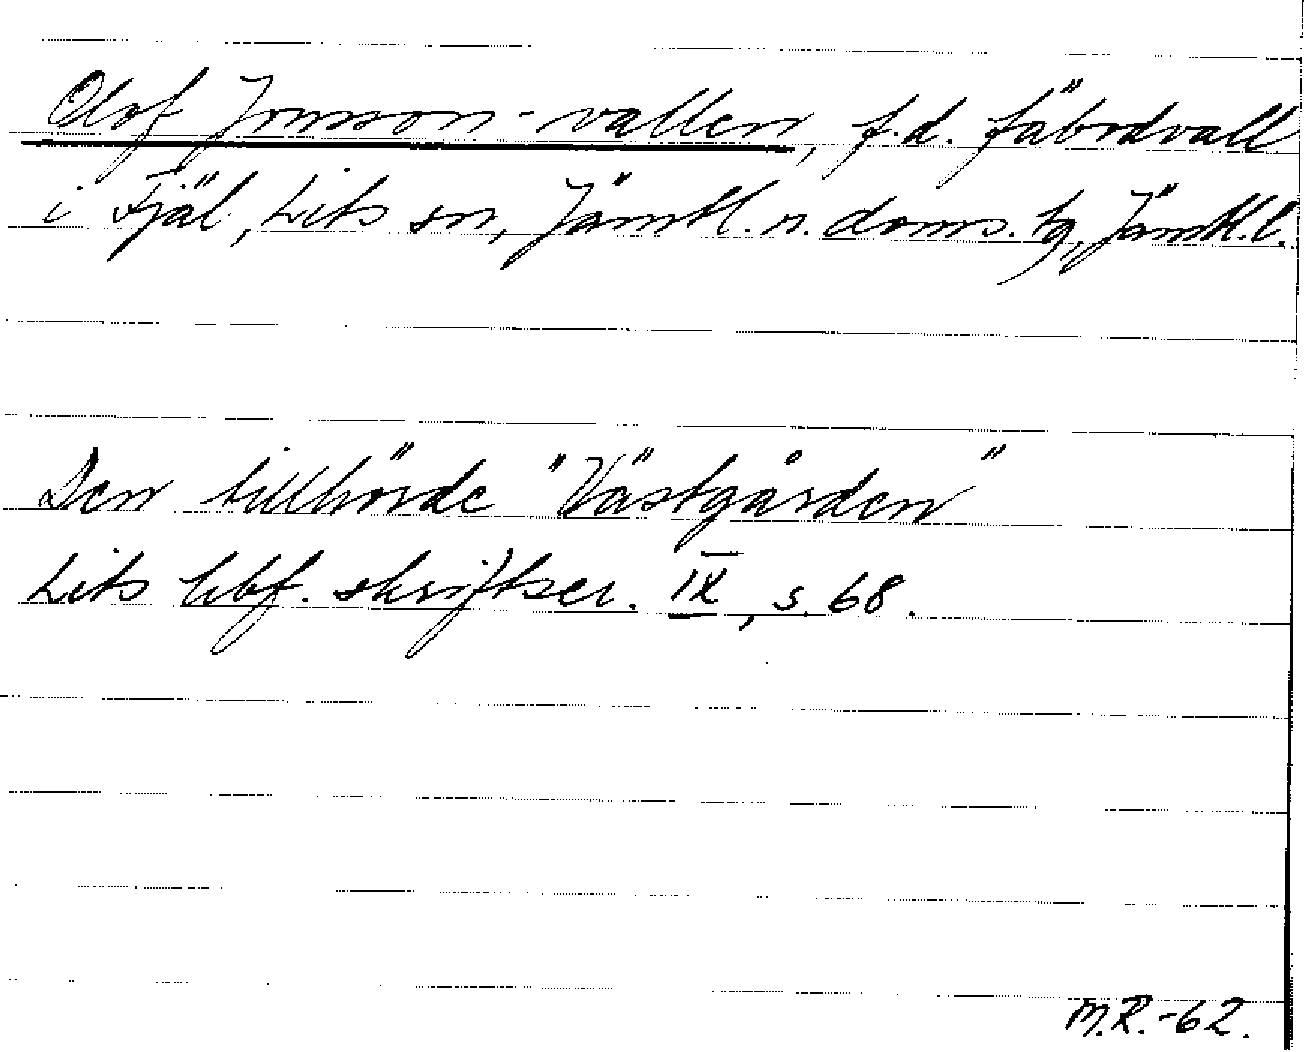 Olof Jonsson-vallen, f.d. fäbodvall
i Fjäl, Lits sn, Jämtl. n. doms. tg, Jämtl. l.
Den tillhörde "Västgården"
Lits hbf. skriftser. IX, s. 68.
M.R.-62.